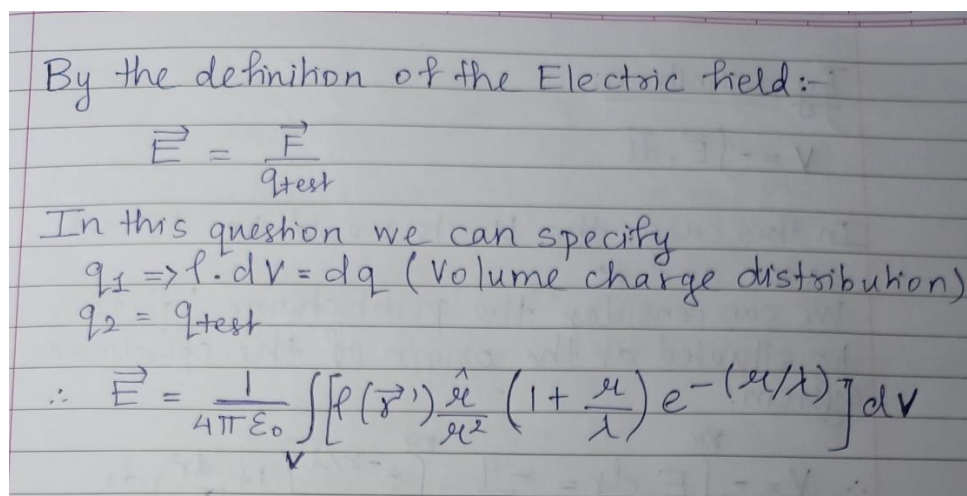 By the definition of the Electric field:-
E⃗ = F⃗ / qtest
In this question we can specify
q1 => ρ.dV = dq (Volume charge distribution)
q2 = qtest
∴ E⃗ = 1/4πε0 ∫V [ρ(r⃗') 𝓇̂/𝓇² (1 + 𝓇/λ) e^-(𝓇/λ)] dV